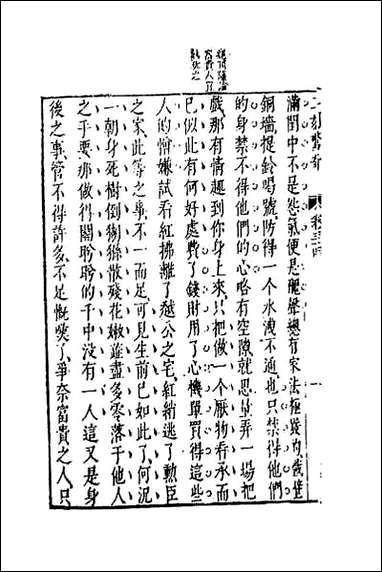 二刻驚奇　卷三十四　一
滿閨中不是怨氣便是醜聲總有家法極嚴的鐵壁
銅墻提鈴喝號防得一個水洩不通也只禁得他們
的身禁不得他們的心略有空隙就思量弄一場把
戲那有情趣到你身上來只把做一個厭物看承而
已似此有何好處費了錢財用了心機單買得這些
人的憎嫌試看紅拂離了越公之宅紅綃逃了勳臣
之家此等之事不一而足可見生前已如此了何況
一朝身死樹倒猢猻散殘花嫩蘂盡多零落于他人
之手要那做得關盼盼的千中沒有一人這又是身
後之事管不得許多不足慨嘆了爭奈富貴之人只